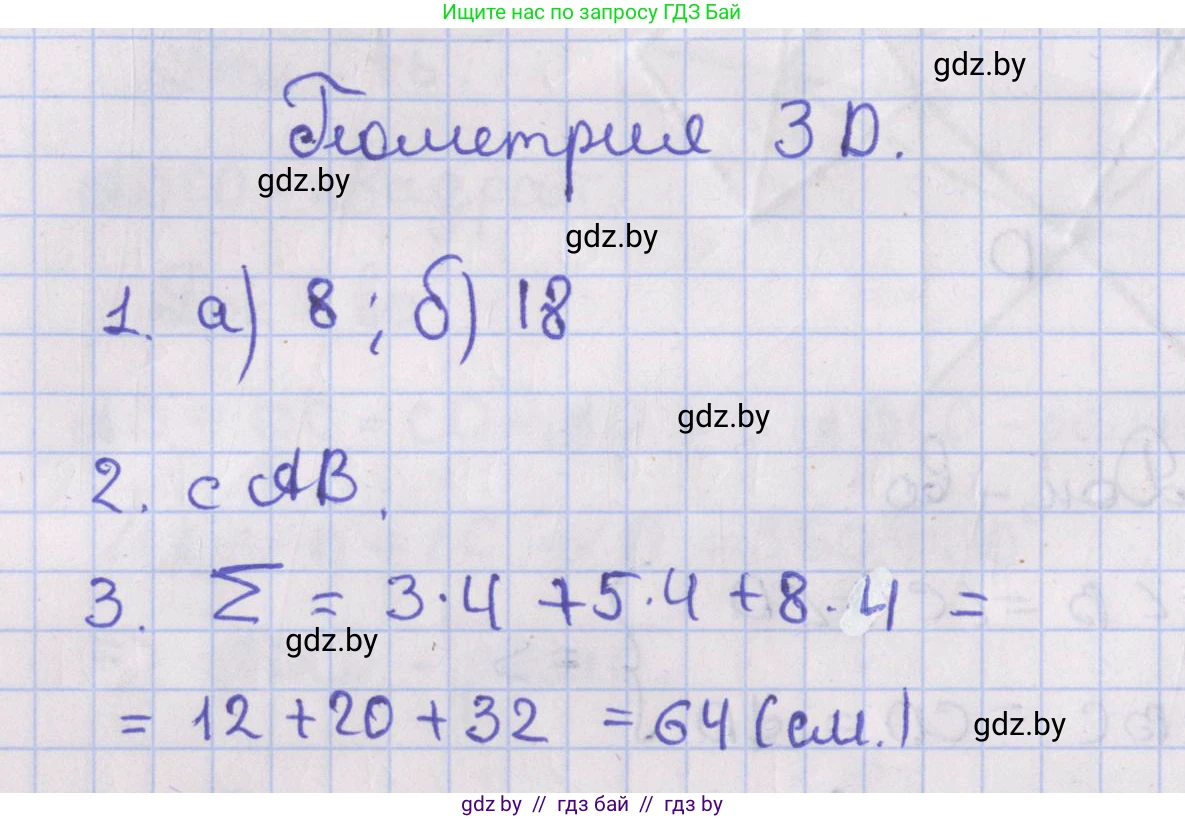 Ищите нас по запросу ГДЗ Бай
gdz.by
Геометрия 3D.
gdz.by
gdz.by
1. а) 8 ; б) 18
gdz.by
2. с AB.
3. Σ = 3·4 + 5·4 + 8·4 =
gdz.by
= 12 + 20 + 32 = 64 (см.)
gdz.by
gdz by // гдз бай // gdz by